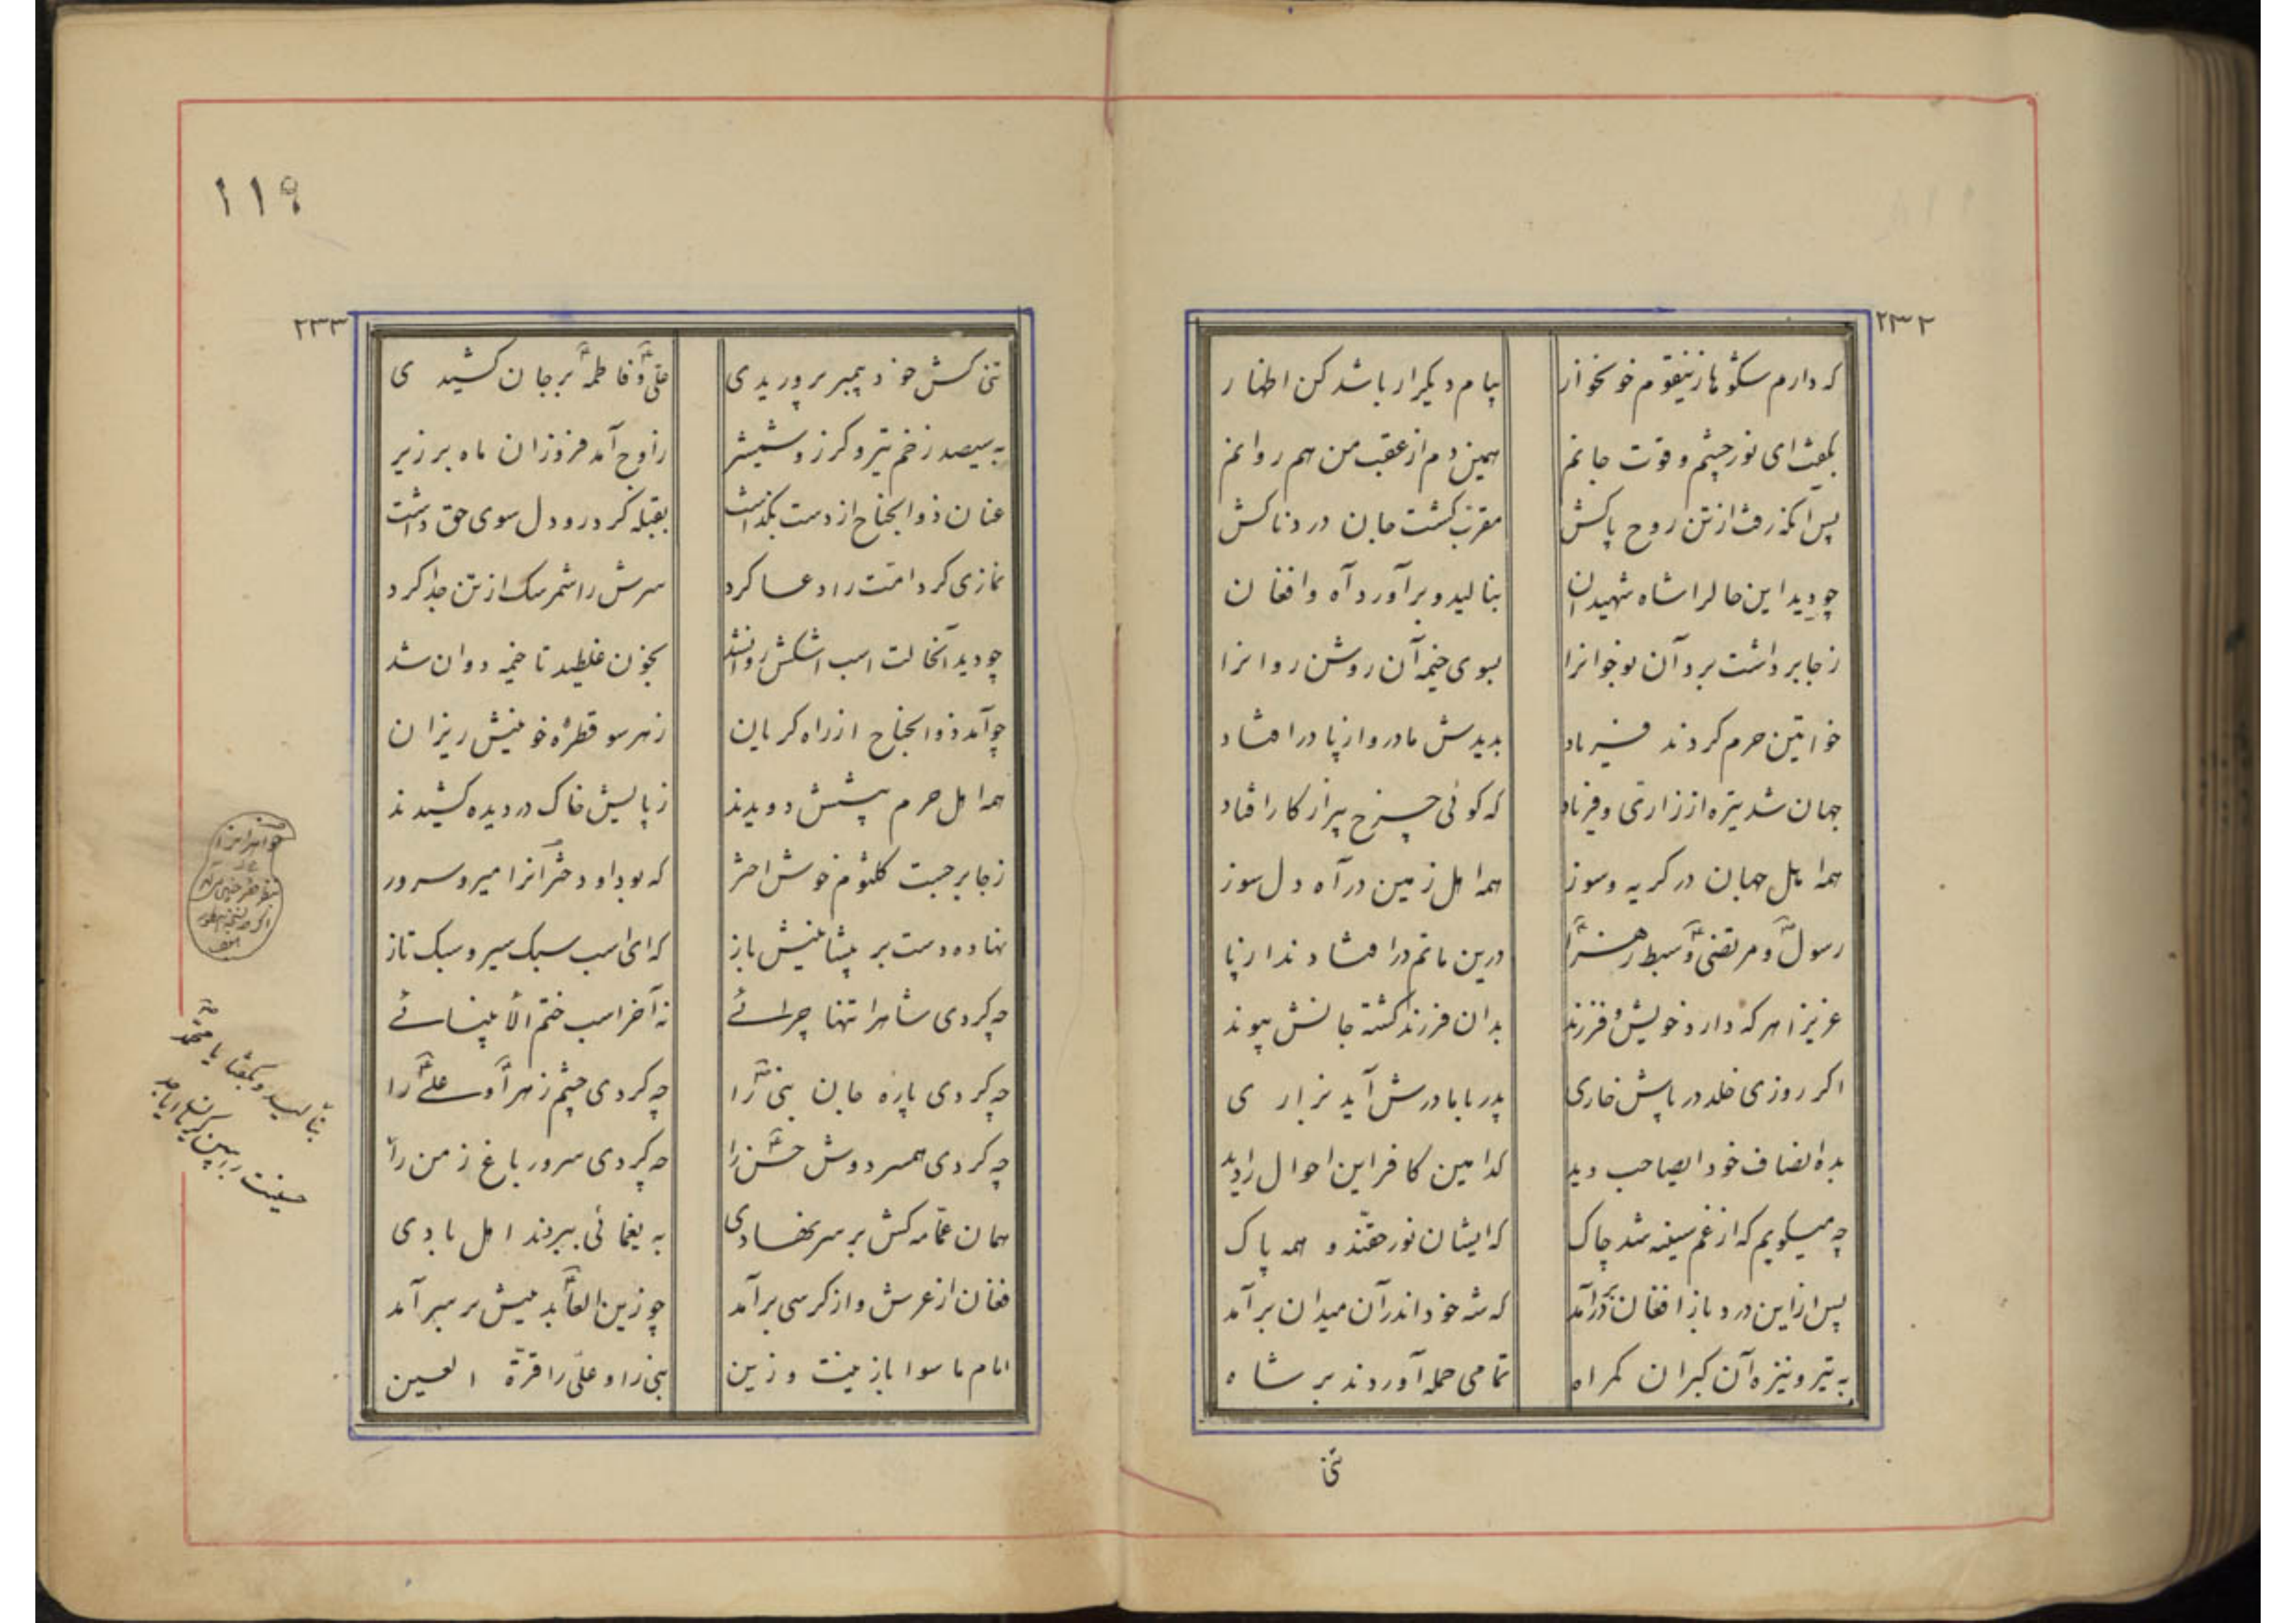 ۲۳۲
که دارم شکوها زینقوم خونخوار پیام دیکر ار باشد کن اظهار
بگفت ای نور چشم و قوت جانم همین دم از عقب من هم روانم
پس آنکه رفت از تن روح پاکش مقرب کشت جان دردناکش
چو دید این حالرا شاه شهیدان بنالید و برآورد آه و افغان
ز جا برداشت برد آن نوجوانرا بسوی خیمه آن روشن روانرا
خواتین حرم کردند فریاد بدیدش مادر و از پا در افتاد
جهان شد تیره از زاری و فریاد که کوئی چرخ پیر از کار افتاد
همه اهل جهان در کریه و سوز همه اهل زمین در آه دل سوز
رسول و مرتضی و سبط زهرا درین ماتم در افتادند از پا
عزیزا هر که دارد خویش و فرزند بدان فرزند کشته جانش پیوند
اکر روزی خلد در پاش خاری پدر با مادرش آید بزاری
بده انصاف خود ایصاحب دید کدامین کافر این احوال را دید
چه میکویم که از غم سینه شد چاک که ایشان نور حقند و همه پاک
پس از این درد باز افغان در آمد که شه خود اندر آن میدان برآمد
به تیر و نیزه آن کبران کمراه تمامی حمله آوردند بر شاه
تنی
۱۱۹
۲۳۳
تنی کش خود پیمبر پروریدی علی و فاطمه بر جان کشیدی
به سیصد زخم تیر و کرز و شمشیر ز اوج آمد فروزان ماه بر زیر
عنان ذوالجناح از دست بگذاشت بقبله کرد رو دل سوی حق داشت
نمازی کرد امت را دعا کرد سرش را شمر سک از تن جدا کرد
چو دید آنحالت اسب اشکش روانشد بخون غلطید تا خیمه دوان شد
چو آمد ذوالجناح از راه کریان ز هر سو قطرهٔ خونینش ریزان
همه اهل حرم پیشش دویدند ز پایش خاک در دیده کشیدند
ز جا برجست کلثوم خوش اختر که بود او دختر آنرا میر و سرور
نهاده دست بر پیشانیش باز که ای اسب سبک سیر و سبک تاز
چه کردی شاهرا تنها چرائے نه آخر اسب ختم الأنبیائے
چه کردی پاره جان نبی را چه کردی چشم زهرا و علی را
چه کردی همسر دوش حسن را چه کردی سرور باغ زمن را
همان عمّامه کش بر سر نهادی به یغمائی ببردند اهل بادی
فغان از عرش و از کرسی برآمد چو زین العابدینش بر سر آمد
امام ماسوا با زینت و زین نبی را و علی را قرّة العین
بنالید و بگفتا یا محمد